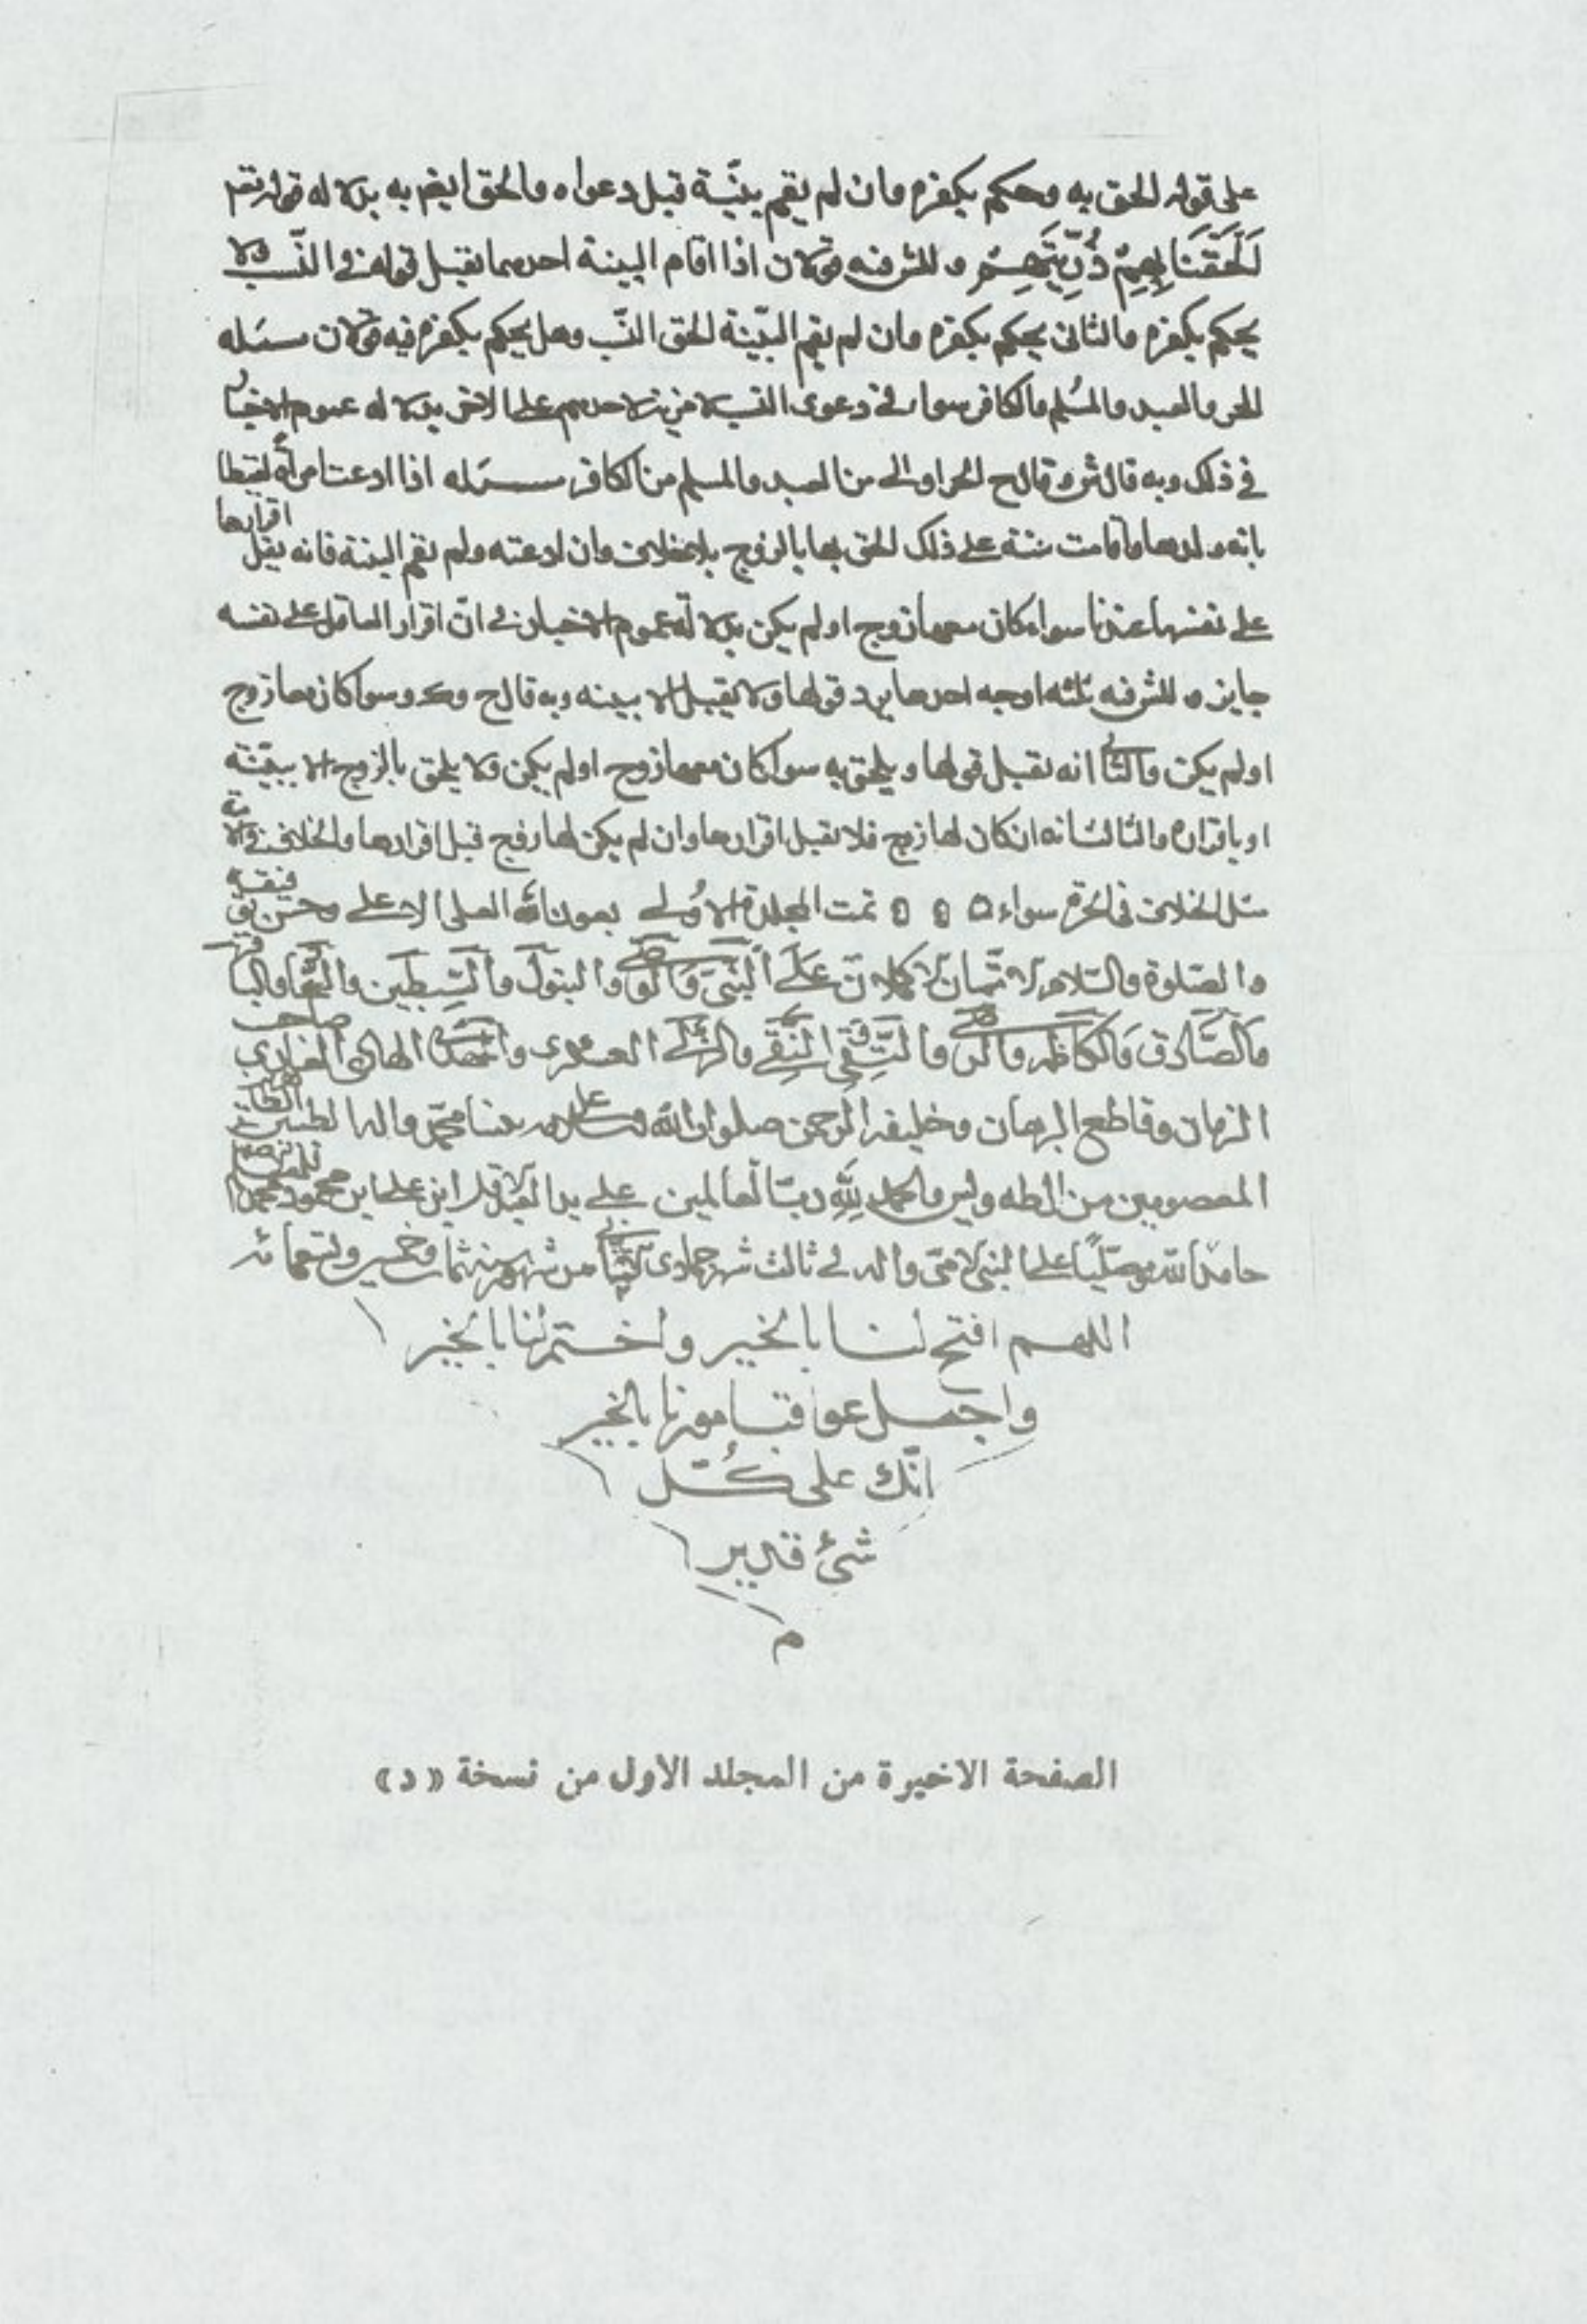 على قوله الحق به وحكم بكفره وان لم يقم بينة قبل دعواه والحق ايضم به بدلاله قوله تعم
أَلْحَقْنَا بِهِمْ ذُرِّيَّتَهُمْ وللش فيه قولان اذا اقام البينة احدهما يقبل قوله في النسب ولا
يحكم بكفره والثانى يحكم بكفره وان لم يقم البينة الحق النسب وهل يحكم بكفره فيه قولان مسئله
الحر والعبد والمسلم والكافر سواء في دعوى النسب لا مزية لاحدهم على الاخر بدلاله عموم الاخبار
في ذلك وبه قال ش وقال ح الحر اولى من العبد والمسلم من الكافر مسئله اذا ادعت امرأة لقيطا
بانه ولدها واقامت بينة على ذلك الحق بها بالزوج بلا خلاف وان ادعته ولم تقم البينة فانه يقبل اقرارها
على نفسها عندنا سواء كان معها زوج او لم يكن بدلالة عموم الاخبار في انّ اقرار العاقل على نفسه
جايز وللش فيه ثلثه اوجه احدها يرد قولها ولا يقبل الا ببينه وبه قال ح وسوا كان معها زوج
او لم يكن والثانى انه يقبل قولها ويلحق به سوا كان معها زوج او لم يكن ولا يلحق بالزوج الا ببينة
او باقراره والثالث انه ان كان لها زوج فلا يقبل اقرارها وان لم يكن لها زوج قبل اقرارها والخلاف في الامة
مثل الخلاف فى الحرة سواء تمت المجلدة الاولى بعون الله العلى الاعلى وحسن توفيقه
والصلوة والسلام الاتمان الاكملان على النبي والوصي والبتول والسبطين والسجاد والباقر
والصادق والكاظم والرضى والتقى النقى والزكي العسكرى والمهدى الهادى صاحب
الزمان وقاطع البرهان وخليفة الرحمن صلوات الله وسلامه على نبينا محمد واله الطيبين الطاهرين
المعصومين من ال طه ويس والحمد لله رب العالمين على يد العبد الاقل ابن على ابن محمود محمد
حامدا لله ومصليًا على النبى الامى واله في ثالث شهر جمادى الثانى من شهور سنه ثمان وخمسين وتسعمائه
اللهم افتح لنا بالخير واختم لنا بالخير
واجعل عواقب امورنا بالخير
انّك على كُلّ
شئ قدير
م
الصفحة الاخيرة من المجلد الاول من نسخة «د»